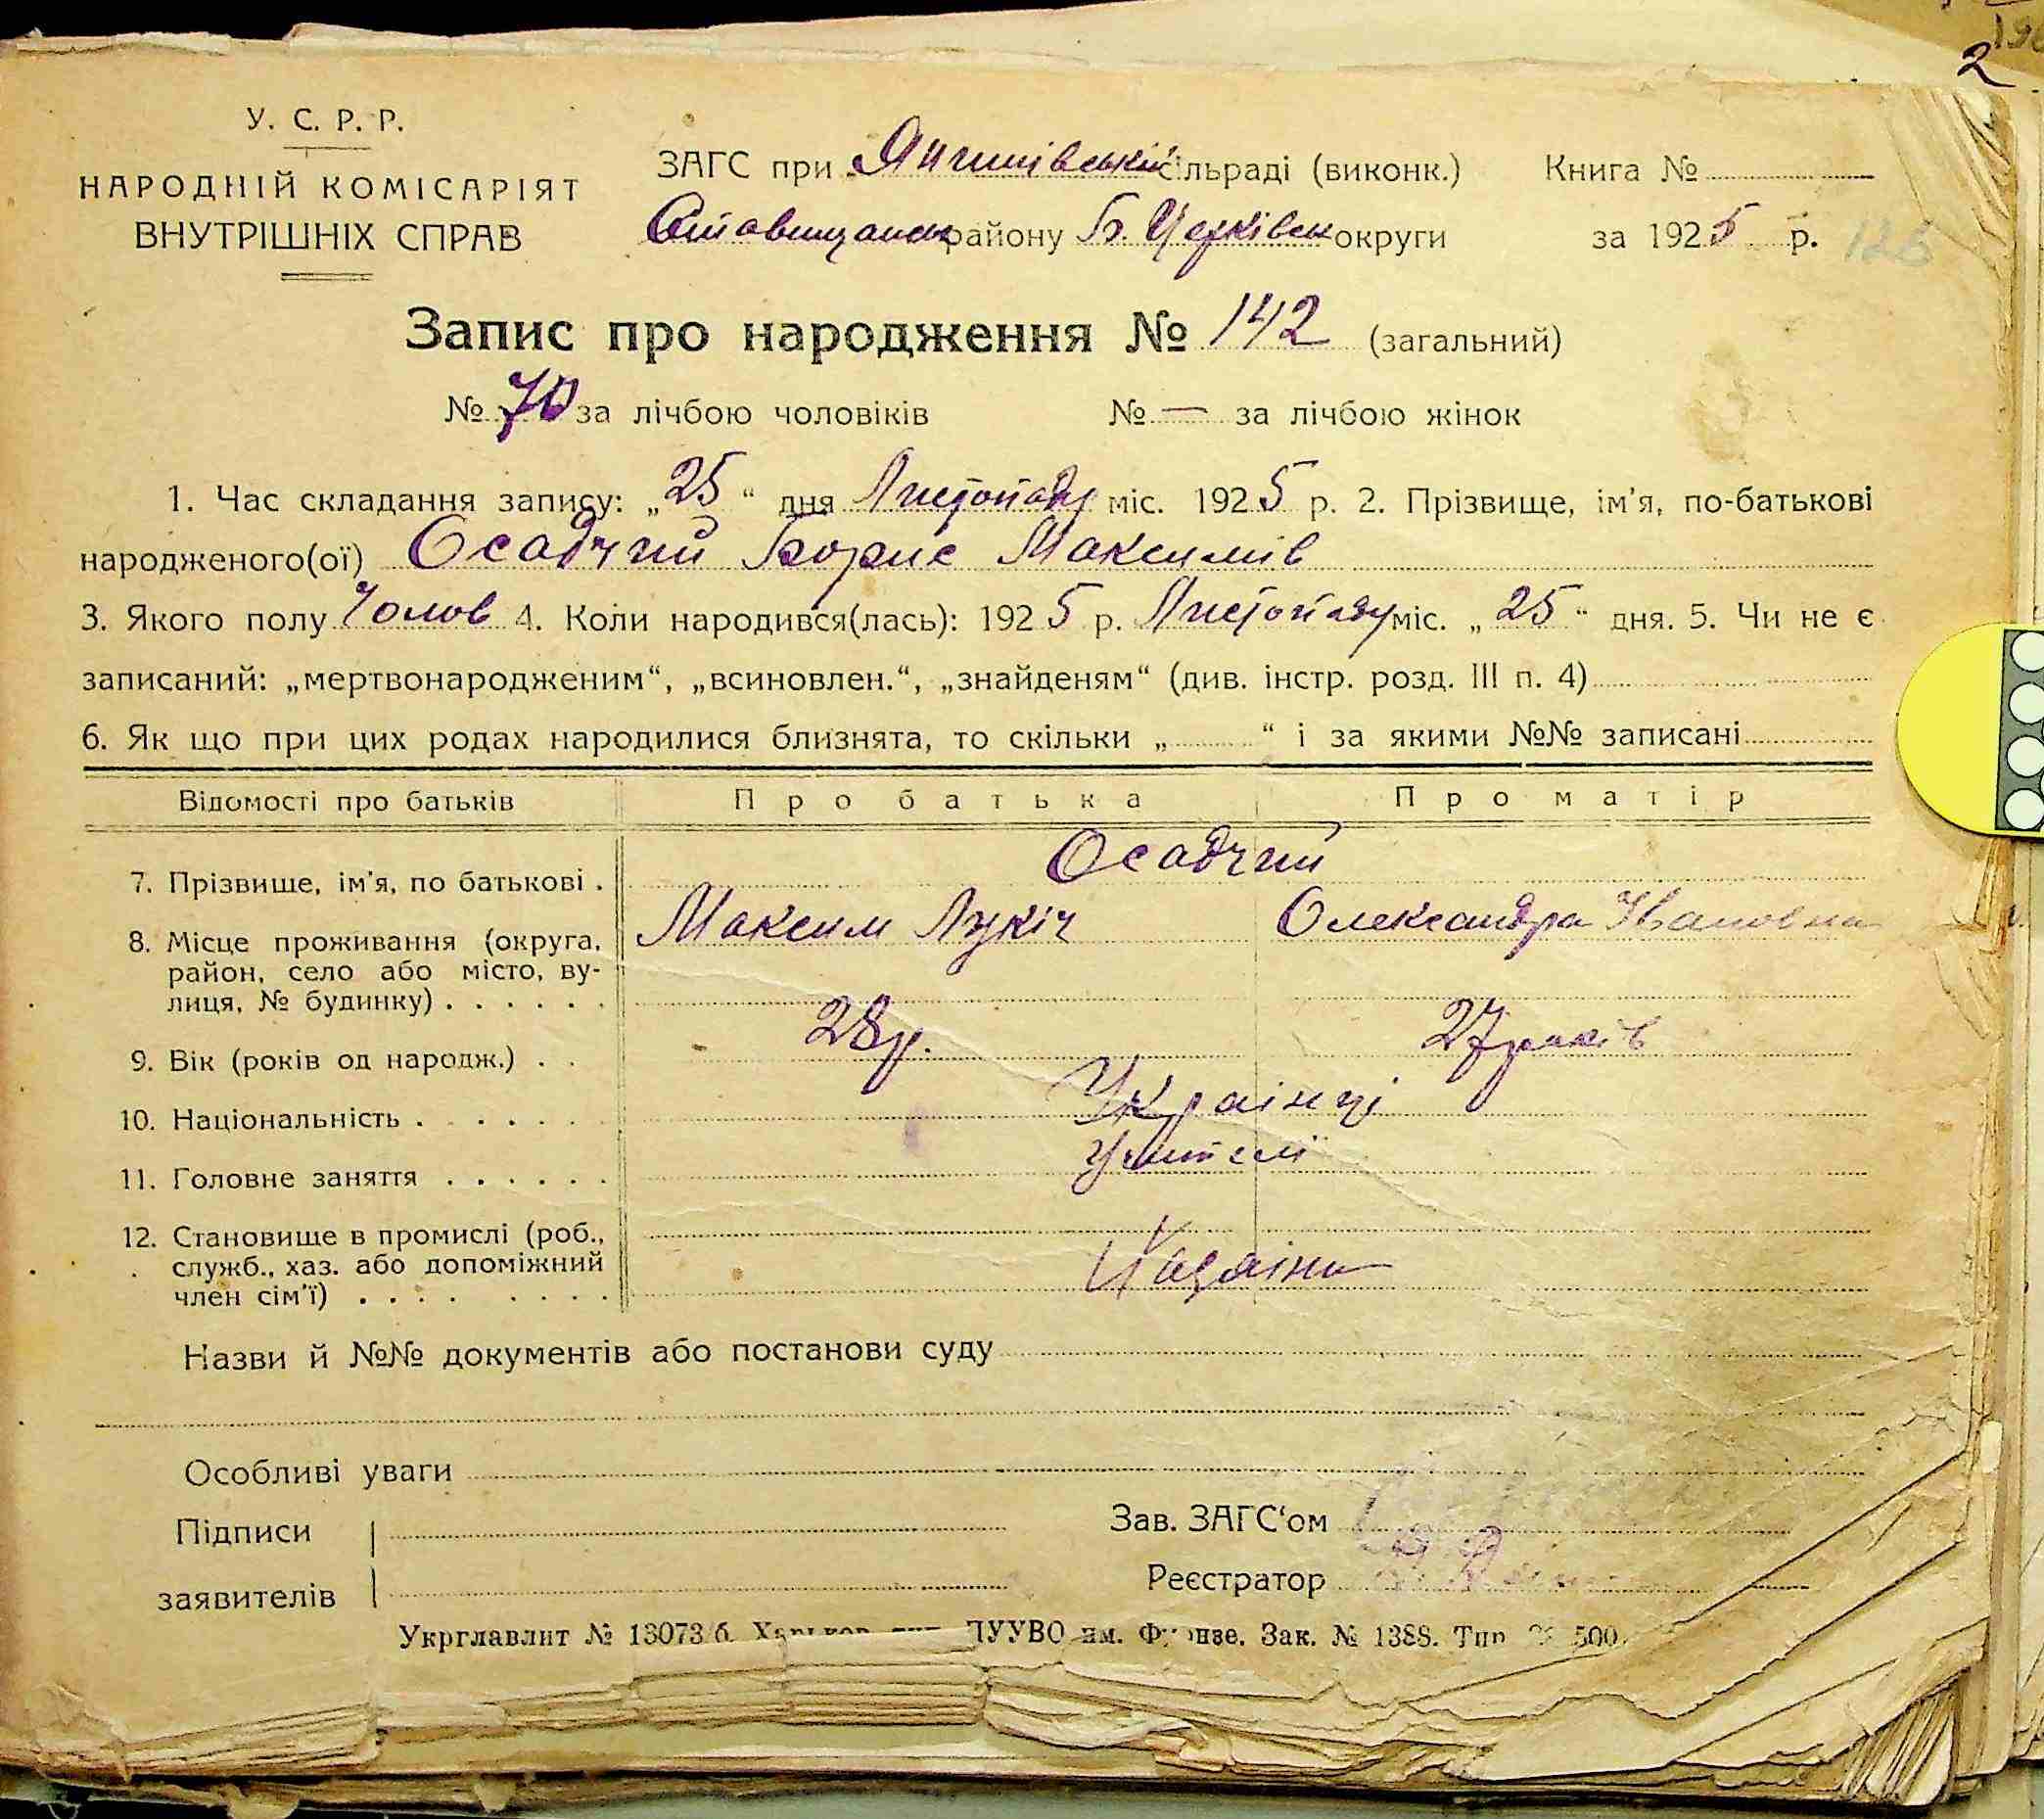 2
У. С. Р. Р.
НАРОДНІЙ КОМІСАРІЯТ
ВНУТРІШНІХ СПРАВ
ЗАГС при Янишівській сільраді (виконк.) Книга №
Ставищанськ району Б. Церківськ округи за 1925 р. 126
Запис про народження № 142 (загальний)
№ 70 за лічбою чоловіків № — за лічбою жінок
1. Час складання запису: „25“ дня Листопаду міс. 1925 р. 2. Прізвище, ім'я, по-батькові
народженого(ої) Осадчий Борис Максимів
3. Якого полу Чолов 4. Коли народився(лась): 1925 р. Листопаду міс. „25“ дня. 5. Чи не є
записаний: „мертвонародженим“, „всиновлен.“, „знайденям“ (див. інстр. розд. III п. 4)
6. Як що при цих родах народилися близнята, то скільки „ “ і за якими №№ записані
Відомості про батьків Про батька Про матір
Осадчий
7. Прізвище, ім'я, по батькові .
Максим Лукіч Олександра Івановна
8. Місце проживання (округа,
район, село або місто, ву-
лиця, № будинку) . . . . . .
28 р. 27 років
9. Вік (років од народж.) . .
Українці
10. Національність . . . . . .
Учителі
11. Головне заняття . . . . . .
12. Становище в промислі (роб.,
служб., хаз. або допоміжний
член сім'ї) . . . . . . . .
Назви й №№ документів або постанови суду
Особливі уваги
Підписи
заявителів
Зав. ЗАГС'ом
Реєстратор
Укрглавліт № 13073/б. Харьков ПУУВО им. Фрунзе. Зак. № 1388. 500